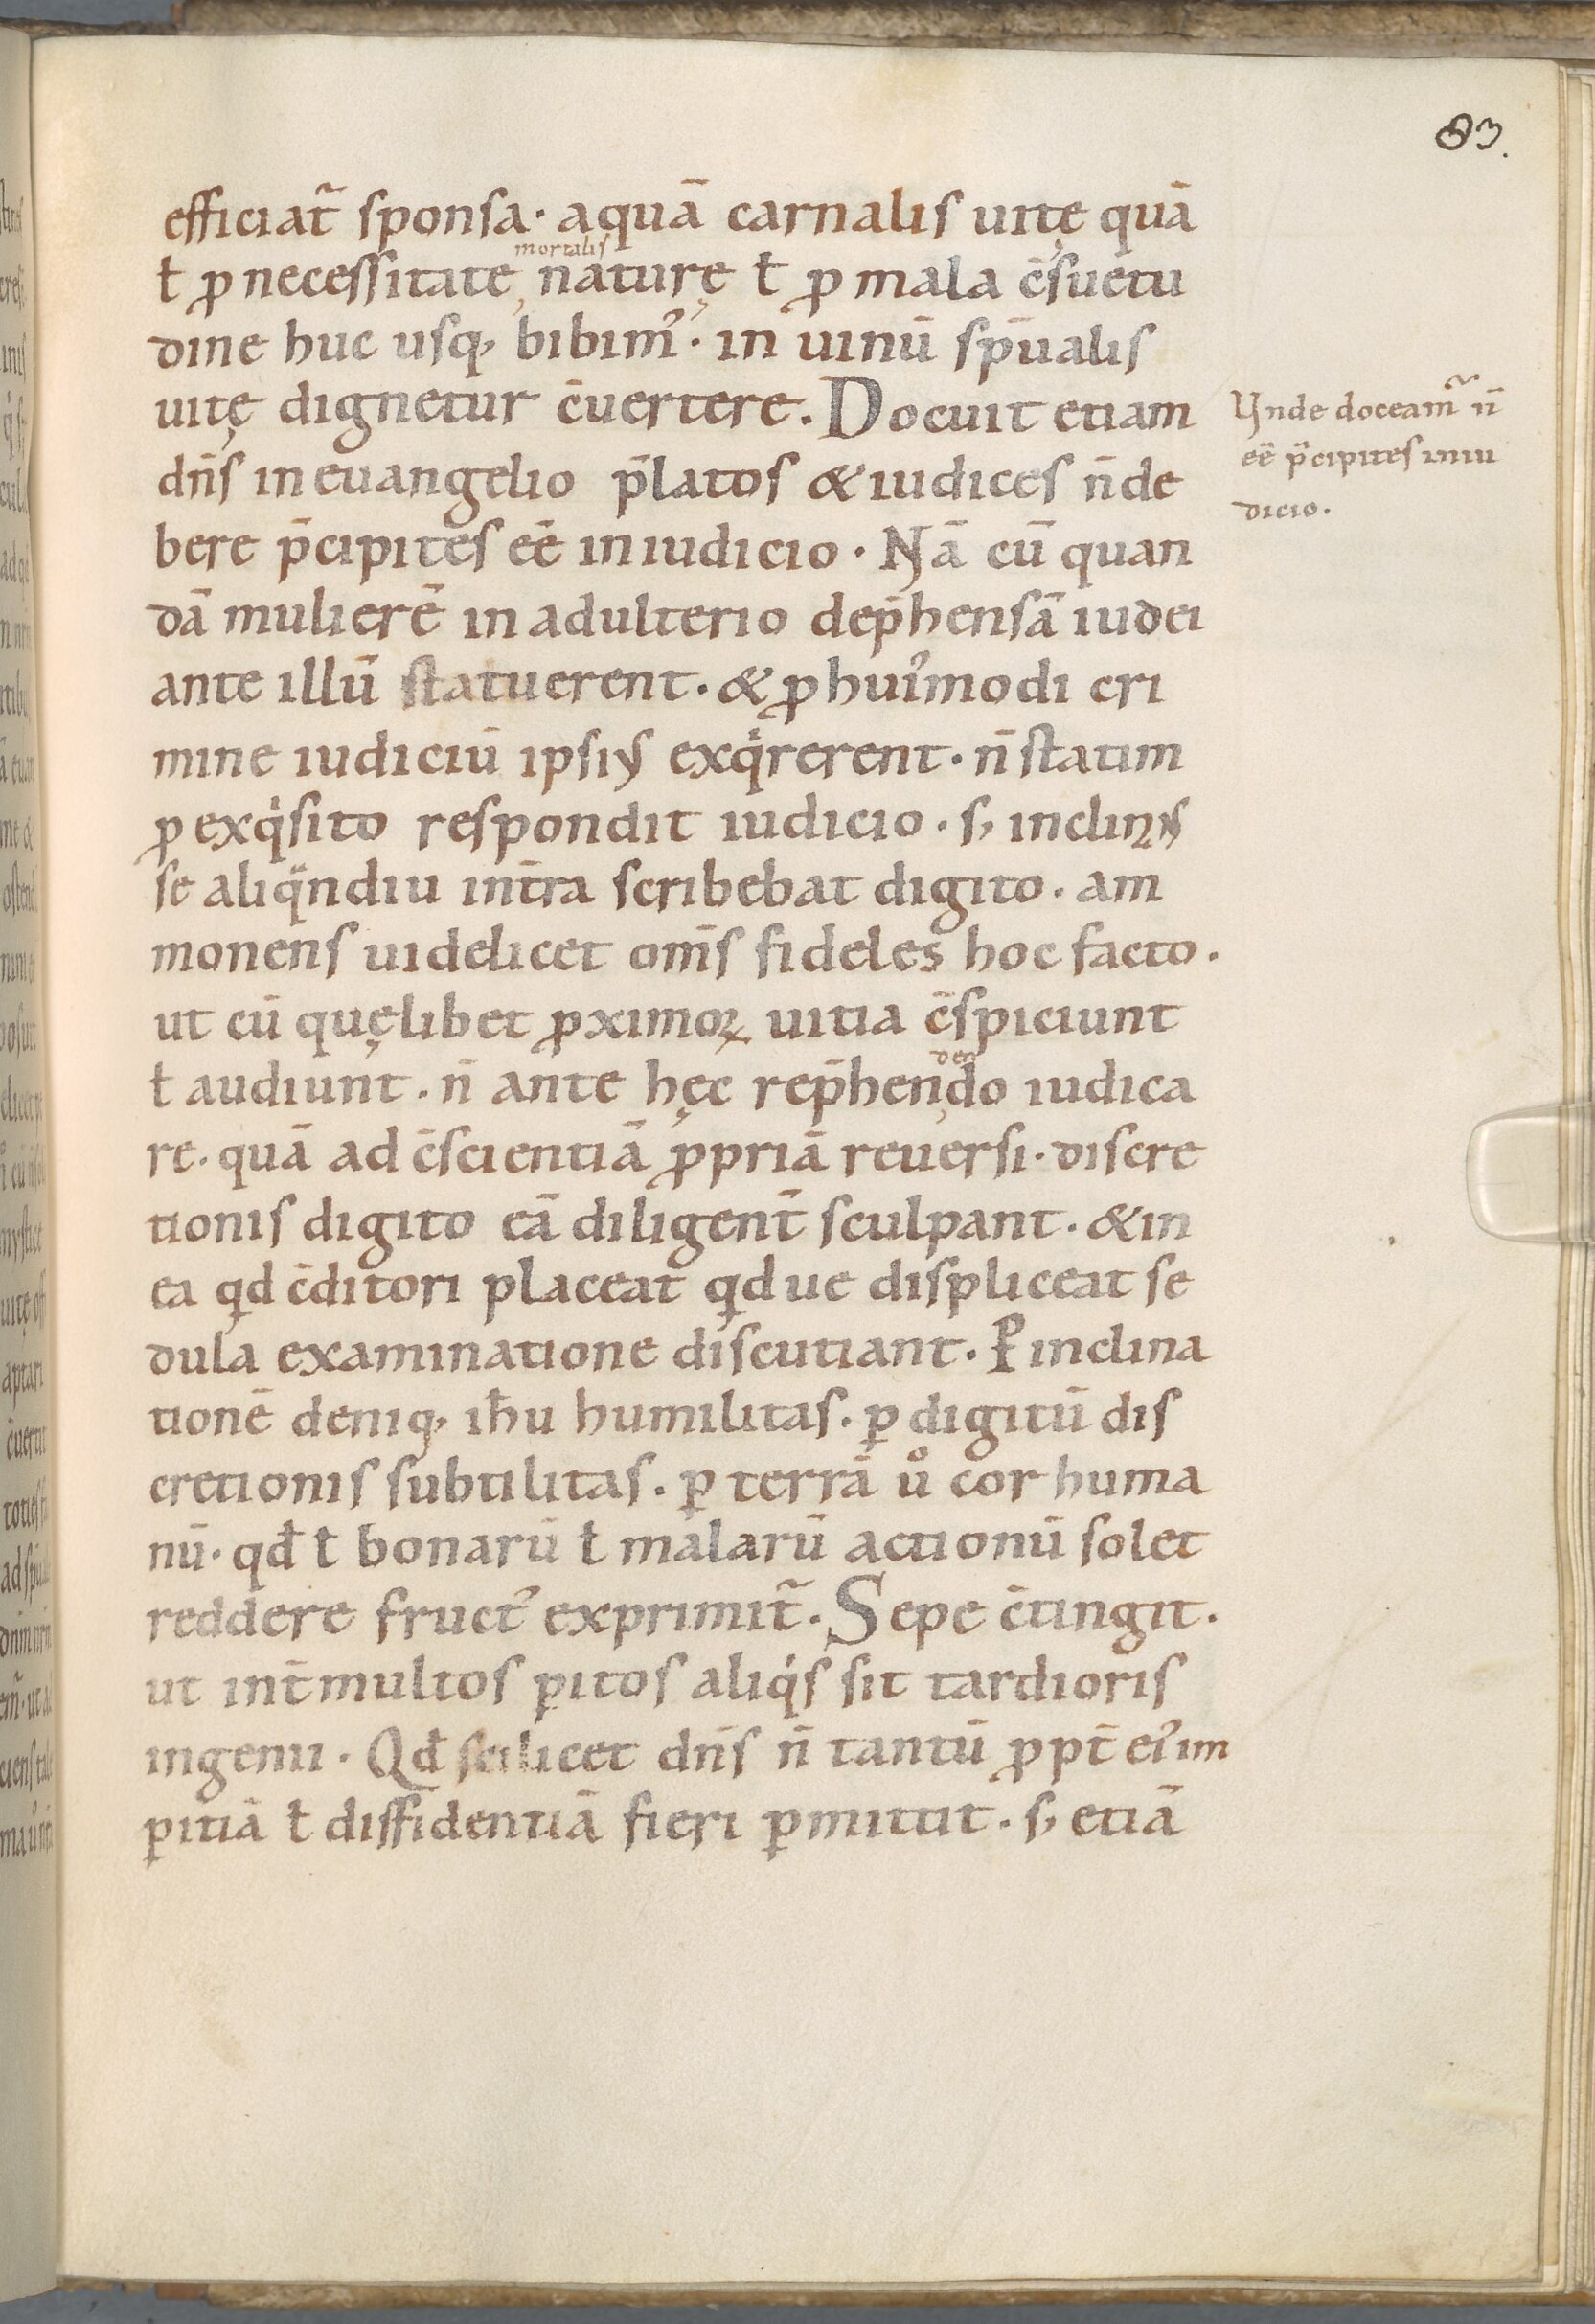 83.
efficiat᷈ sponsa · aquā carnalis uitę quā
mortalis
ł ꝓ necessitate, naturę ł ꝓ mala c̄suetu
dine huc usq, bibim᾿ · in uinū sp̄ualis
uitę dignetur c̄uertere. Docuit etiam
dn̄s in euangelio p̄latos & iudices n̄ de
bere p̄cipites eē in iudicio · Nā cū quan
dā mulierē in adulterio dep̄hensā iudei
ante illū statuerent · & ꝓ hui᾿modi cri
mine iudiciū ipsiꝰ exqͥrerent · n̄ statim
ꝓ exqͥsito respondit iudicio · s, inclinꝰs
se aliqͣndiu int̄ra scribebat digito · am
monens uidelicet om̄s fideles hoc facto ·
ut cū quęlibet ꝓximoꝝ uitia c̄spiciunt
den
ł audiunt · n̄ ante hęc rep̄hen,do iudica
re · quā ad c̄scientiā ꝓpriā reuersi · discre
tionis digito eā diligent̄ sculpant · & in
ea qd c̄ditori placeat qdue displiceat se
dula examinatione discutiant · Ꝑ inclina
tionē deniq, ih̄u humilitas · ꝑ digitū dis
cretionis subtilitas · ꝑ terrā uͦ cor huma
nū · qđ ł bonarū ł malarū actionū solet
reddere fruct᾿ exprimit᷈ · Sepe c̄tingit ·
ut int̄ multos ꝑitos aliqͥs sit tardioris
ingenii · Qđ scilicet dn̄s n̄ tantū ꝓpt̄ ei᾿ im
ꝑitiā ł diffidentiā fieri ꝑmittit · s, etiā
Vnde doceam᷈ n̄
eē p̄cipites in iu
dicio.